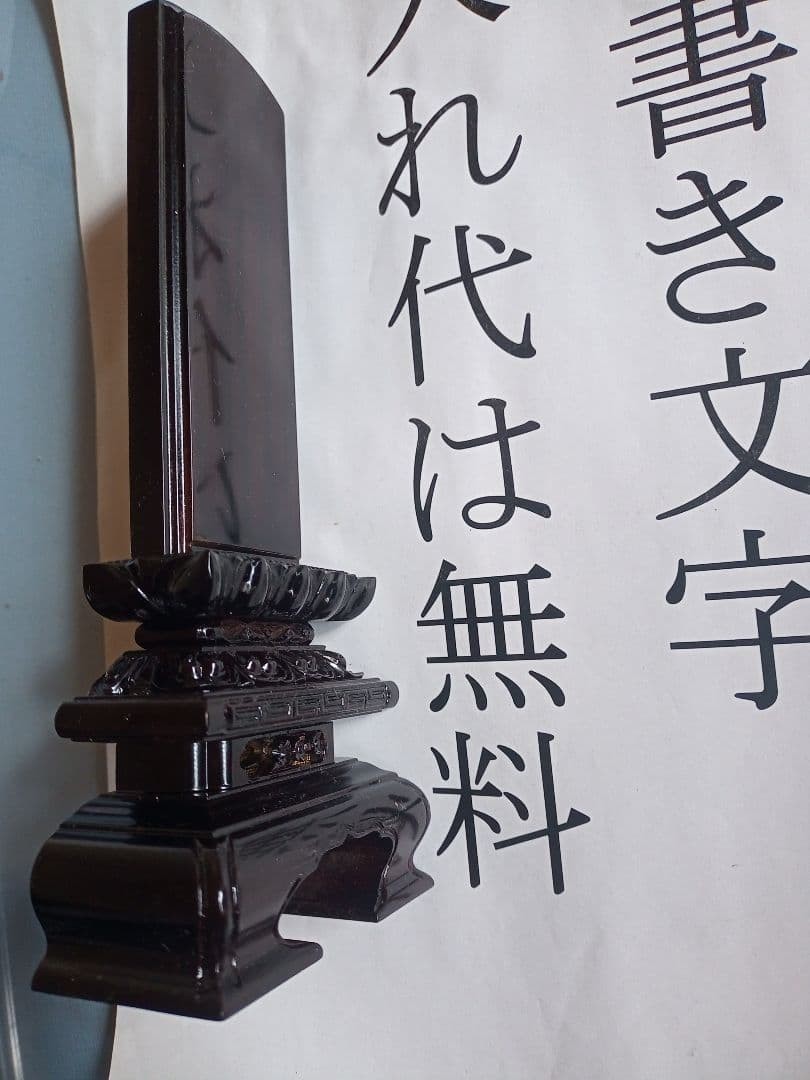 書き文字
入れ代は無料